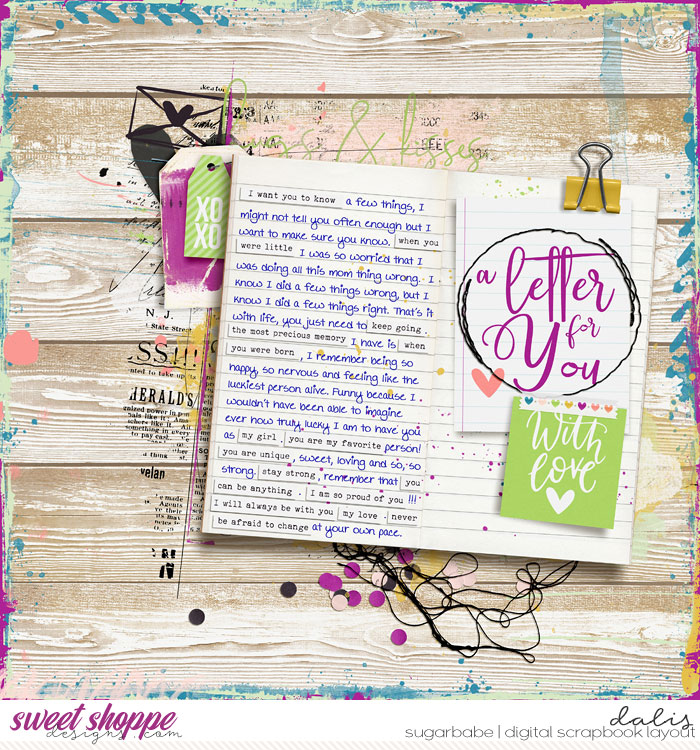 hugs & kisses
XO
XO
I want you to know a few things, I
might not tell you often enough but I
want to make sure you know. when you
were little I was so worried that I
was doing all this mom thing wrong. I
know I did a few things wrong, but I
know I did a few things right. That's it
with life, you just need to keep going.
the most precious memory I have is when
you were born, I remember being so
happy, so nervous and feeling like the
luckiest person alive. Funny because I
wouldn't have been able to imagine
ever how truly lucky I am to have you
as my girl. you are my favorite person!
you are unique, sweet, loving and so, so
strong. stay strong, remember that you
can be anything. I am so proud of you !!!
I will always be with you my love. never
be afraid to change at your own pace.
a letter
for
You
With
love
345
KESSE
N. J.
( State Street
SS!!!
HERALD'S
velan
sweet shoppe
designs.com
dalis
sugarbabe | digital scrapbook layout